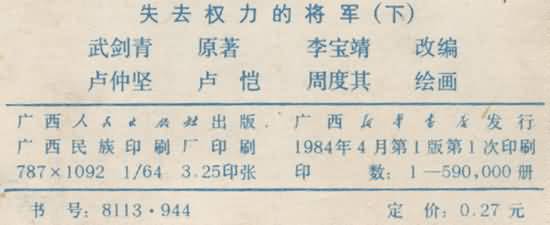 失去权力的将军(下)
武剑青 原著 李宝靖 改编
卢仲坚 卢恺 周度其 绘画
广西人民出版社出版 广西新华书店发行
广西民族印刷厂印刷 1984年4月第1版第1次印刷
787×1092 1/64 3.25印张 印 数:1—590,000册
书号:8113·944 定价:0.27元